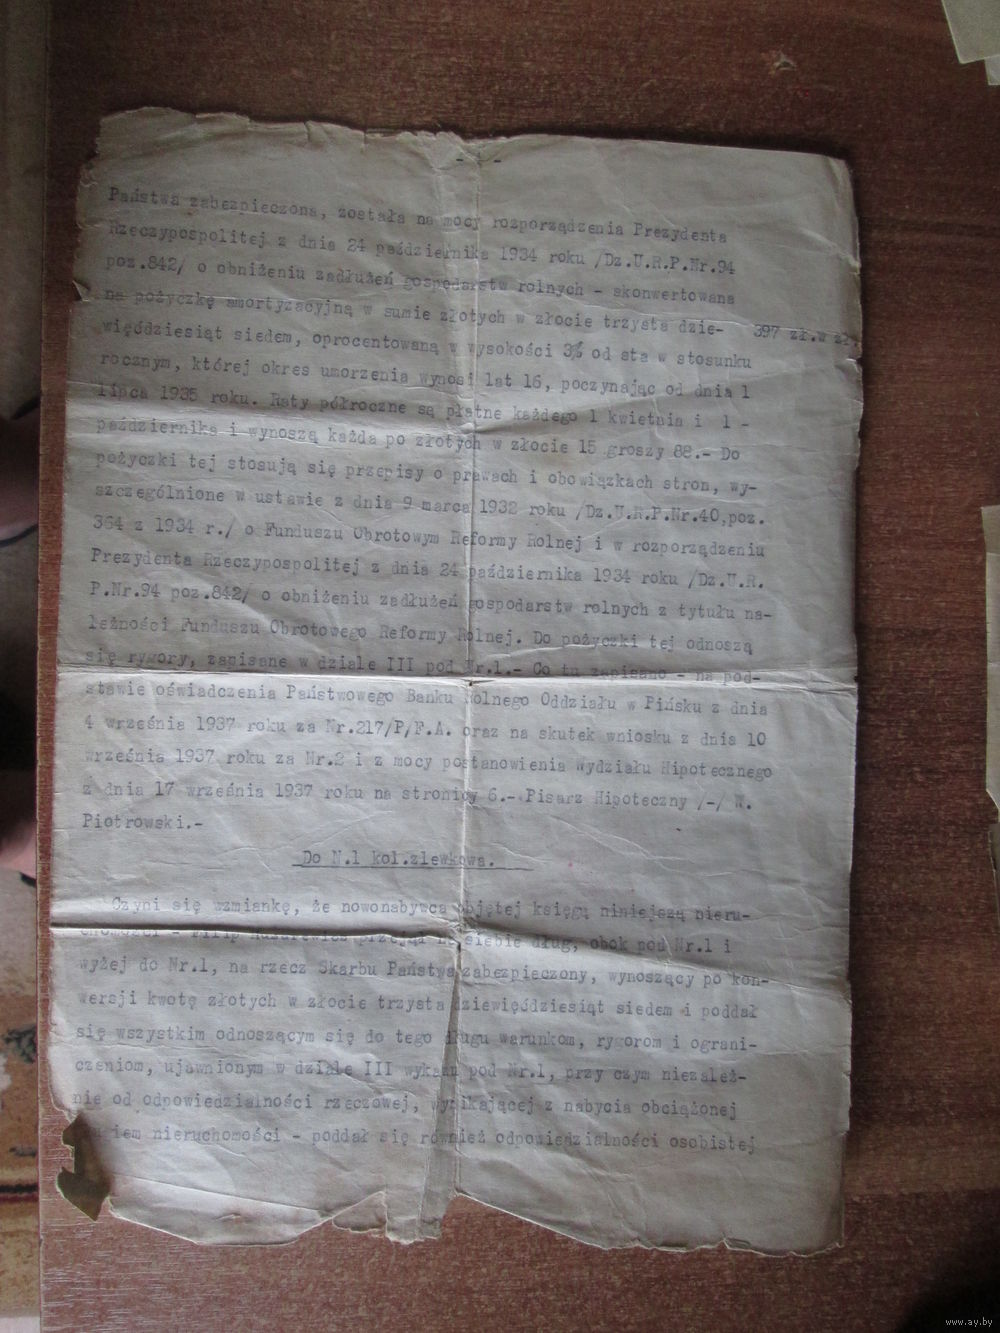 - -
Państwa zabezpieczona, została na mocy rozporządzenia Prezydenta
Rzeczypospolitej z dnia 24 października 1934 roku /Dz.U.R.P.Nr.94
poz.842/ o obniżeniu zadłużeń gospodarstw rolnych - skonwertowana
na pożyczkę amortyzacyjną w sumie złotych w złocie trzysta dzie- 397 zł.w zł.
więćdziesiąt siedem, oprocentowaną w wysokości 3% od sta w stosunku
rocznym, której okres umorzenia wynosi lat 16, poczynając od dnia 1
lipca 1935 roku. Raty półroczne są płatne każdego 1 kwietnia i 1 -
października i wynoszą każda po złotych w złocie 15 groszy 88.- Do
pożyczki tej stosują się przepisy o prawach i obowiązkach stron, wy-
szczególnione w ustawie z dnia 9 marca 1932 roku /Dz.U.R.P.Nr.40,poz.
364 z 1934 r./ o Funduszu Obrotowym Reformy Rolnej i w rozporządzeniu
Prezydenta Rzeczypospolitej z dnia 24 października 1934 roku /Dz.U.R.
P.Nr.94 poz.842/ o obniżeniu zadłużeń gospodarstw rolnych z tytułu na-
leżności Funduszu Obrotowego Reformy Rolnej. Do pożyczki tej odnoszą
się rygory, zapisane w dziale III pod Nr.1.- Co tu zapisano - na pod-
stawie oświadczenia Państwowego Banku Rolnego Oddziału w Pińsku z dnia
4 września 1937 roku za Nr.217/P/F.A. oraz na skutek wniosku z dnia 10
września 1937 roku za Nr.2 i z mocy postanowienia Wydziału Hipotecznego
z dnia 17 września 1937 roku na stronicy 6.- Pisarz Hipoteczny /-/ W.
Piotrowski.-
Do N.1 kol.zlewkowa.
Czyni się wzmiankę, że nowonabywca objętej księgą niniejszą nieru-
chomości - Filip przejął na siebie dług, obok pod Nr.1 i
wyżej do Nr.1, na rzecz Skarbu Państwa zabezpieczony, wynoszący po kon-
wersji kwotę złotych w złocie trzysta dziewięćdziesiąt siedem i poddał
się wszystkim odnoszącym się do tego długu warunkom, rygorom i ograni-
czeniom, ujawnionym w dziale III wykazu pod Nr.1, przy czym niezależ-
nie od odpowiedzialności rzeczowej, wynikającej z nabycia obciążonej
nieruchomości - poddał się również odpowiedzialności osobistej
www.ay.by